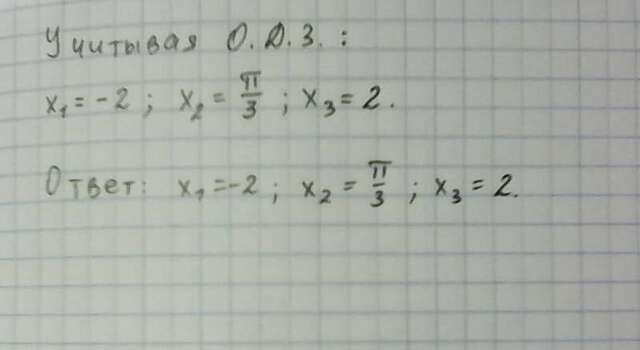 Учитывая О.Д.З.:
x₁ = -2; x₂ = π/3; x₃ = 2.
Ответ: x₁ = -2; x₂ = π/3; x₃ = 2.